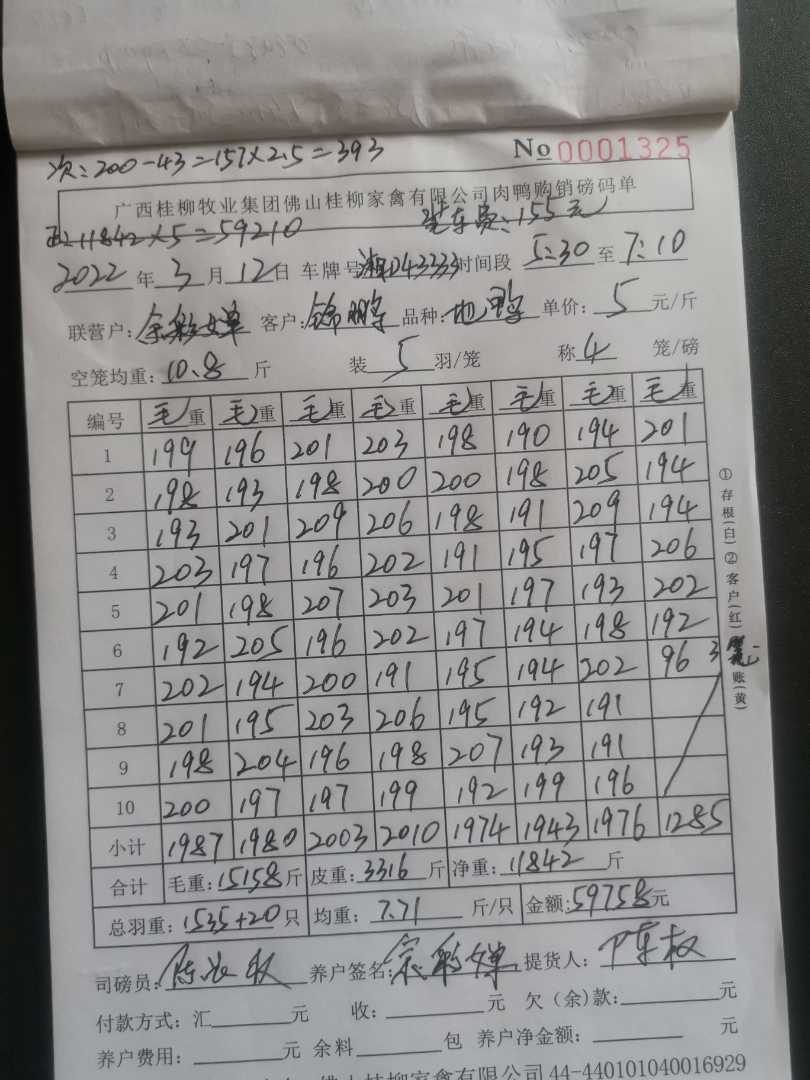 次：200-43=157×2.5=393
No 0001325
广西桂柳牧业集团佛山桂柳家禽有限公司肉鸭购销磅码单
11842×5=59210 车费：155元
2022年3月12日 车牌号湘D43333时间段 5:30至7:10
联营户：余彩婵 客户：锦鹏 品种： 鸭 单价：5元/斤
空笼均重：10.8斤 装5羽/笼 称4笼/磅
编号 毛重 毛重 毛重 毛重 毛重 毛重 毛重 毛重
1 199 196 201 203 198 190 194 201
2 198 193 198 200 200 198 205 194
3 193 201 209 206 198 191 209 194
4 203 197 196 202 191 195 197 206
5 201 198 207 203 201 197 193 202
6 192 205 196 202 197 194 198 192
7 202 194 200 191 195 194 202 96 3笼
8 201 195 203 206 195 192 191
9 198 204 196 198 207 193 191
10 200 197 197 199 192 199 196
小计 1987 1980 2003 2010 1974 1943 1976 1285
合计 毛重：15158斤 皮重：3316斤 净重：11842斤
总羽重：1535+20只 均重：7.71斤/只 金额：59758元
司磅员：陈 权 养户签名：余彩婵 提货人：陈权
付款方式：汇 元 收： 元 欠（余）款： 元
养户费用： 元 余料 包 养户净金额： 元
佛山桂柳家禽有限公司 44-440101040016929
①存根(白)②客户(红) 账(黄)